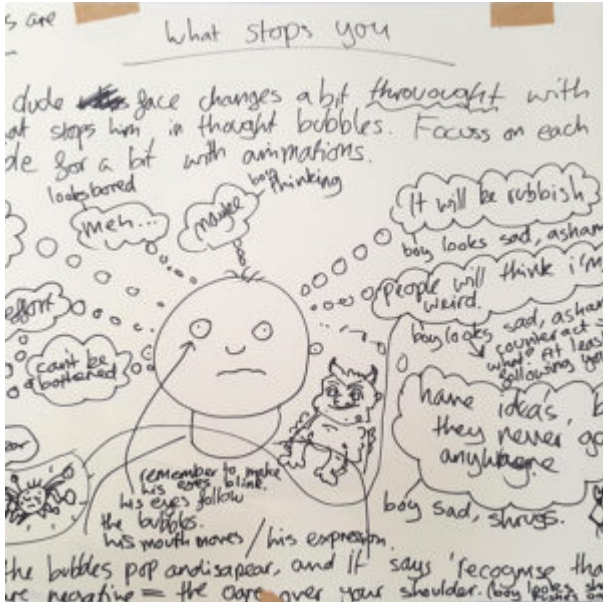 s are
What stops you
dude face changes a bit throuought with
at stops him in thought bubbles. Focuss on each
de for a bit with animations.
looks bored
meh...
maybe
boy thinking
It will be rubbish
boy looks sad, asham
people will think i'm
weird.
boy looks sad, asham
counteract
what? At leas
following yo
effort
can't be
bothered
have idea's, b
they never go
anywayne
boy sad, shrugs.
remember to make
his eyes blink.
his eyes follow
the bubbles.
his mouth moves / his expression.
the bubbles pop andisapear, and it says 'recognise tha
are negative = the over your shoulder. (boy looks